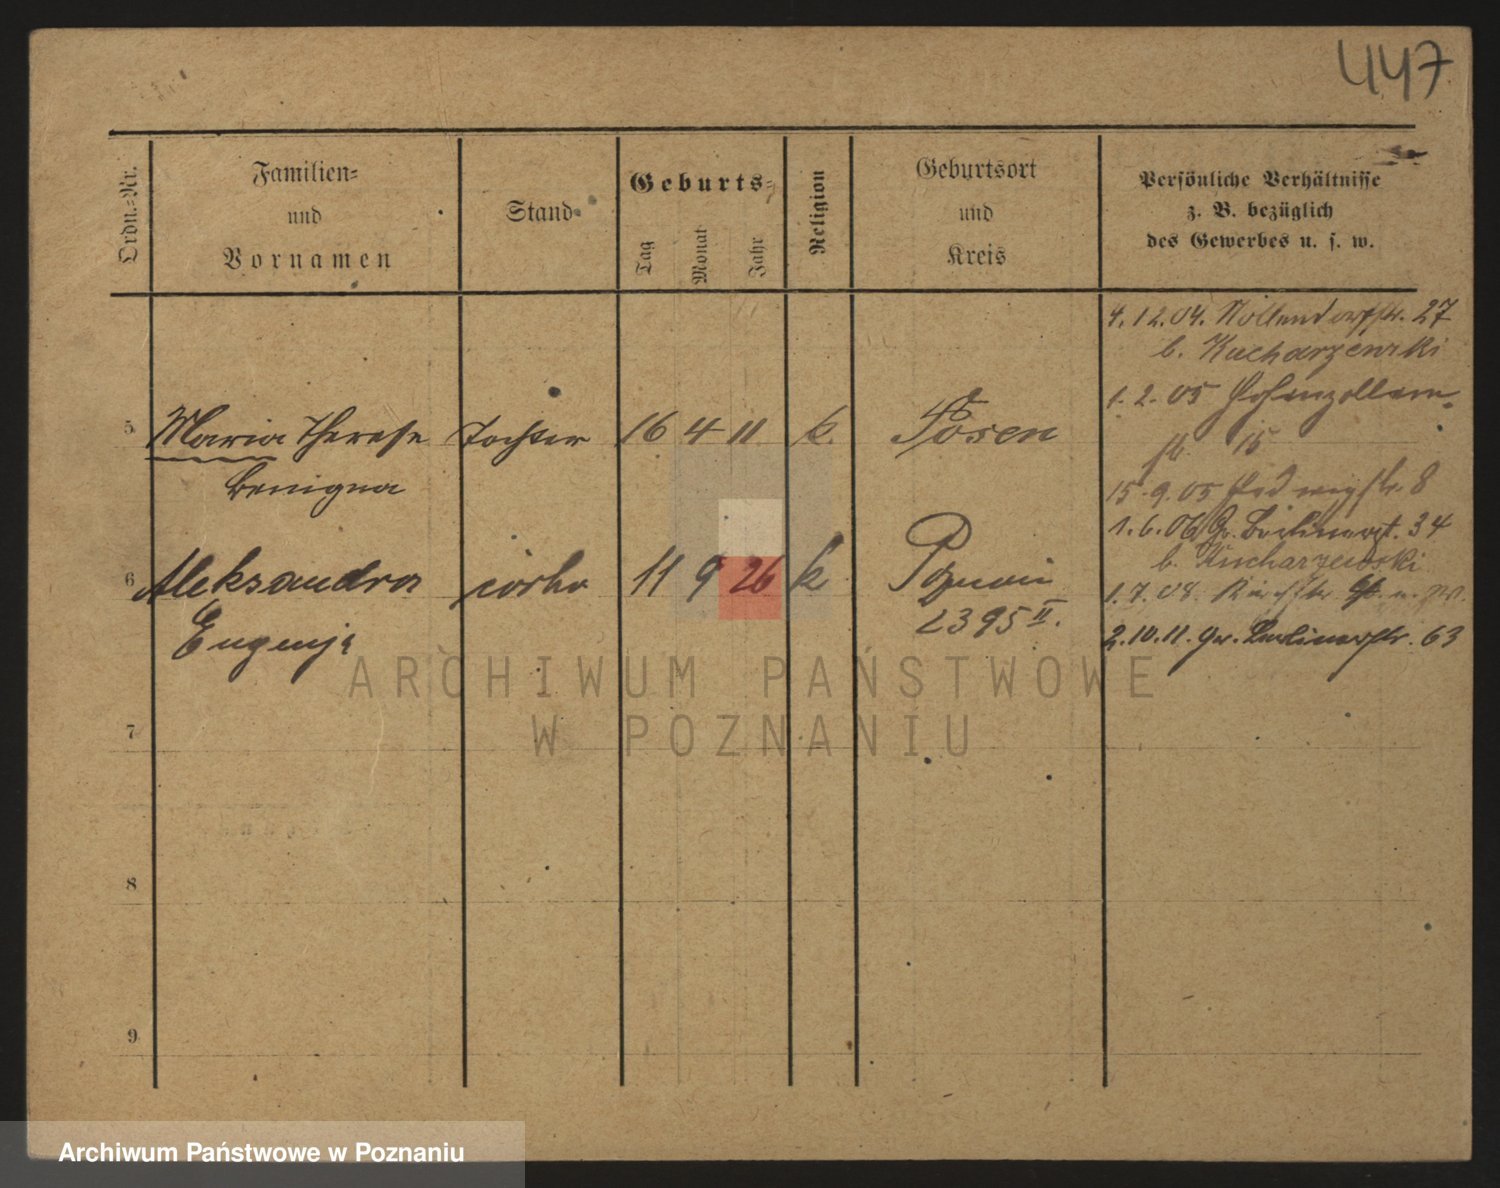 447
Ordn.-Nr.
Familien-
und
Vornamen
Stand
Geburts-
Tag
Monat
Jahr
Religion
Geburtsort
und
Kreis
Persönliche Verhältnisse
z. B. bezüglich
des Gewerbes u. s. w.
4.12.04. Nollendorfstr. 27
b. Kucharzewski
1. 2. 05 Hohenzollern-
str 15
15. 9. 05 Hedwigstr. 8
1. 6. 06 Gr. Berlinerst. 34
b. Kucharzewski
1. 7. 08.
2.10.11. Gr. Berlinerstr. 63
5 Maria Therese Tochter 16 4 11 k. Posen
Benigna
6 Aleksandra córka 11 9 26 k Poznań
Eugenja 2395 II.
7
8
9
ARCHIWUM PAŃSTWOWE
W POZNANIU
Archiwum Państwowe w Poznaniu